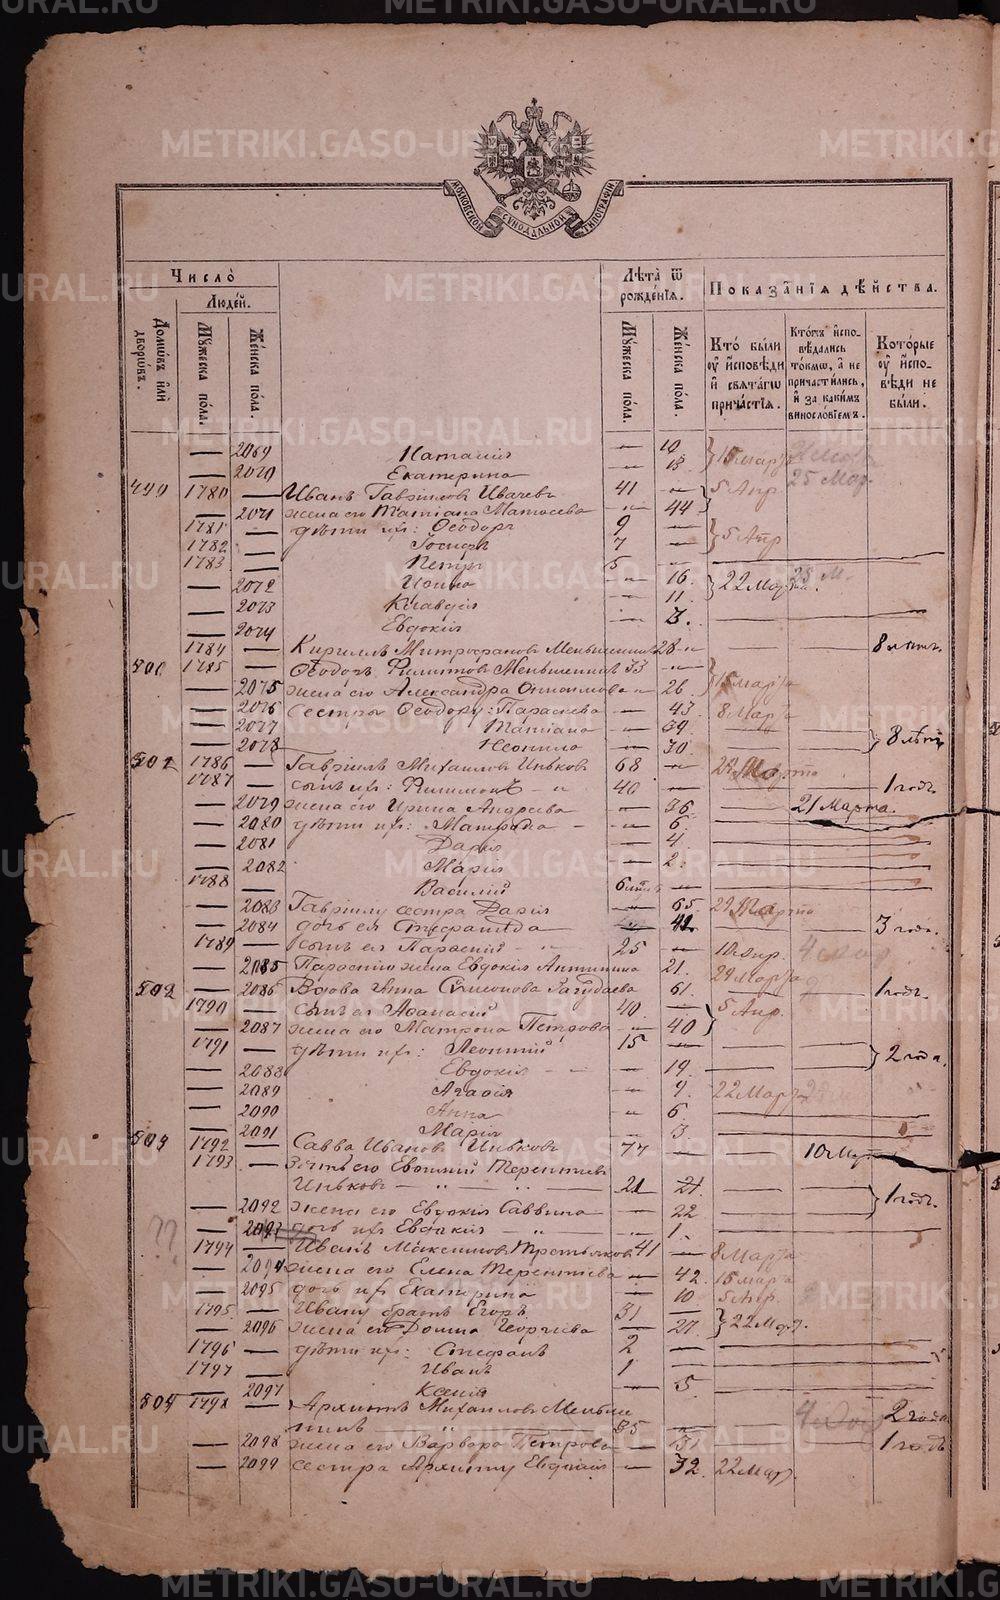 МОСКОВСКОЙ СѴНОДАЛЬНОЙ ТИПОГРАФІИ
Число̀
Люде́й.
Домѡ́въ и҆лѝ дворѡ́въ.
Мꙋ́жеска по́ла.
Же́нска по́ла.
Лѣ̑та ѿ рожде́нїѧ.
Мꙋ́жеска по́ла.
Же́нска по́ла.
Показа̑нїѧ дѣ́йства.
Кто̀ бы́ли ᲂу҆ и҆сповѣ́ди и҆ свѧта́гѡ прича́стїѧ.
Кто́мъ и҆спо- вѣ́дались то́кмѡ, а҆ не причасти́лись, и҆ за каки́мъ винослові́емъ.
Кото́рые ᲂу҆ и҆спо- вѣ́ди не бы́ли.
— 2069 Наталія — 10 15 марта
— 2070 Екатерина — 13 25 Мар.
499 1780 — Иванъ Гавриловъ Ивачевъ 41 — 5 Апр.
— 2071 жена его Татіана Матѳеева — 44
1781 — дѣти ихъ: Ѳеодоръ 9 — 5 Апр
1782 — Іосифъ 7 —
1783 — Петръ 5 —
— 2072 — 16 22 Мар.
— 2073 Клавдія — 11
— 2074 Евдокія — 3.
1784 — Кириллъ Митрофановъ Меньшенинъ 28 — 8 лѣтъ
500 1785 — Ѳеодоръ Филиповъ Меньшенинъ 33 — 15 марта
— 2075 жена его Александра — 26
— 2076 сестры Ѳеодору: Параскева — 43 8 Марта
— 2077 Татіана — 39 8 лѣтъ
— 2078 Неонила — 30
501 1786 — Гавріилъ Михаиловъ Иньковъ 68 — Марта
1787 — сынъ ихъ: Филимонъ 40 — 1 годъ.
— 2079 жена его Ирина Андреева — 36 21 Марта.
— 2080 дѣти ихъ: Матрона — 6
— 2081 Дарья — 4
— 2082 Марія — 2
1788 — Василій —
— 2083 Гавріилу сестра Дарія — 65 Марта
— 2084 дочь ея Стефанида 3 года.
1789 — сынъ ея Парѳеній 25 — 10 Апр.
— 2085 Парѳенію жена Евдокія Антипина 21. 29 Марта
502 — 2086 Вдова Анна Симеонова — 61. 1 годъ.
1790 — сынъ ея Аѳанасій 40 — 5 Апр.
— 2087 жена его Матрона Петрова — 40
1791 — дѣти ихъ: Леонтій 15 — 2 года.
— 2088 Евдокія — 19
— 2089 Агаѳія — 9 22 Марта
— 2090 Анна — 6
— 2091 Марія — 3
503 1792 — Савва Ивановъ Иньковъ 77 — 10 Мар
1793 — Зять его Евѳимій Терентіевъ
Иньковъ 21 1 годъ.
— 2092 жена его Евдокія Саввина — 22
— 2093 дочь ихъ Евдокія — 1
1794 — Иванъ Максимовъ Третьяковъ 41 — 8 Марта
— 2094 жена его Елена Терентіева — 42 15 марта
— 2095 дочь ихъ Екатерина — 10 5 Апр.
1795 — Ивану братъ Егоръ 31 — 22 Мар.
— 2096 жена его Домна Георгіева — 27
1796 — дѣти ихъ: Стефанъ 2 —
1797 — Иванъ 1 —
— 2097 Ксенія — 5
504 1798 — Архиппъ Михаиловъ Меньше
нинъ 35 — 2 года
— 2098 жена его Варвара Петрова — 31 1 годъ
— 2099 сестра Архиппу Евдокія — 32 22 Мар.
METRIKI.GASO-URAL.RU